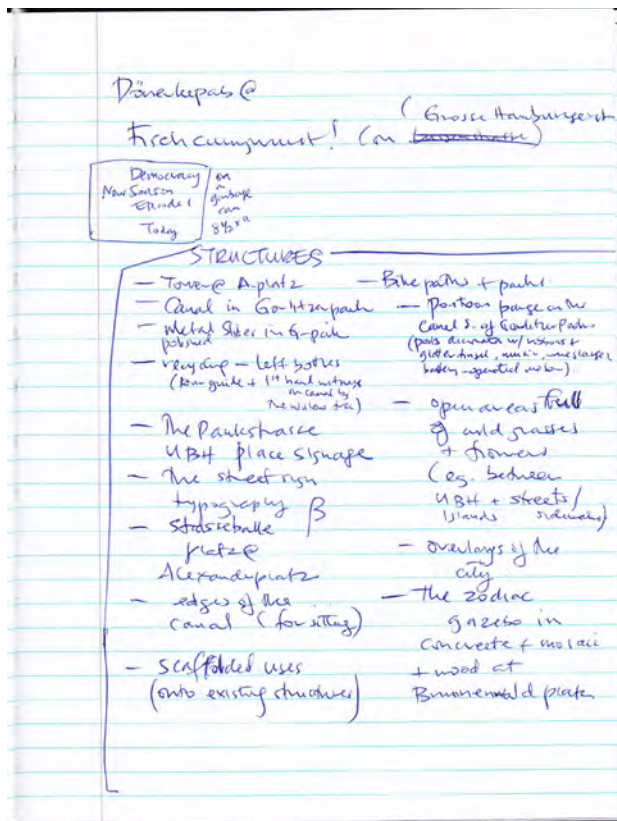 Dönerkepabs @
(Grosse Hamburgerst
! (on
Democracy
New Season
Episode 1
Today
on
a
garbage
can
8½ x 11
STRUCTURES
— Tower @ A-platz
— Canal in Gorlitzerpark
— Metal Slides in G-park
polished
— recycling — left bottles
(tour guide + 1st hand witness
on canal by
the willow tree)
— The Pankstrasse
UBH place signage
— The street sign
typography β
— Strasseballe
platz @
Alexanderplatz
— edges of the
canal (for sitting)
— scaffolded uses
(onto existing structures)
— Bike paths + parks
— Pontoon barge on the
Canal S. of Gorlitzer Park
(posts decorated w/ ribbons +
glitter tinsel, music,
battery-operated motor)
— open areas full
of wild grasses
+ flowers
(eg. between
UBH + streets/
islands sidewalks)
— overlays of the
city
— the zodiac
gazebo in
concreete + mosaic
+ wood at
platz